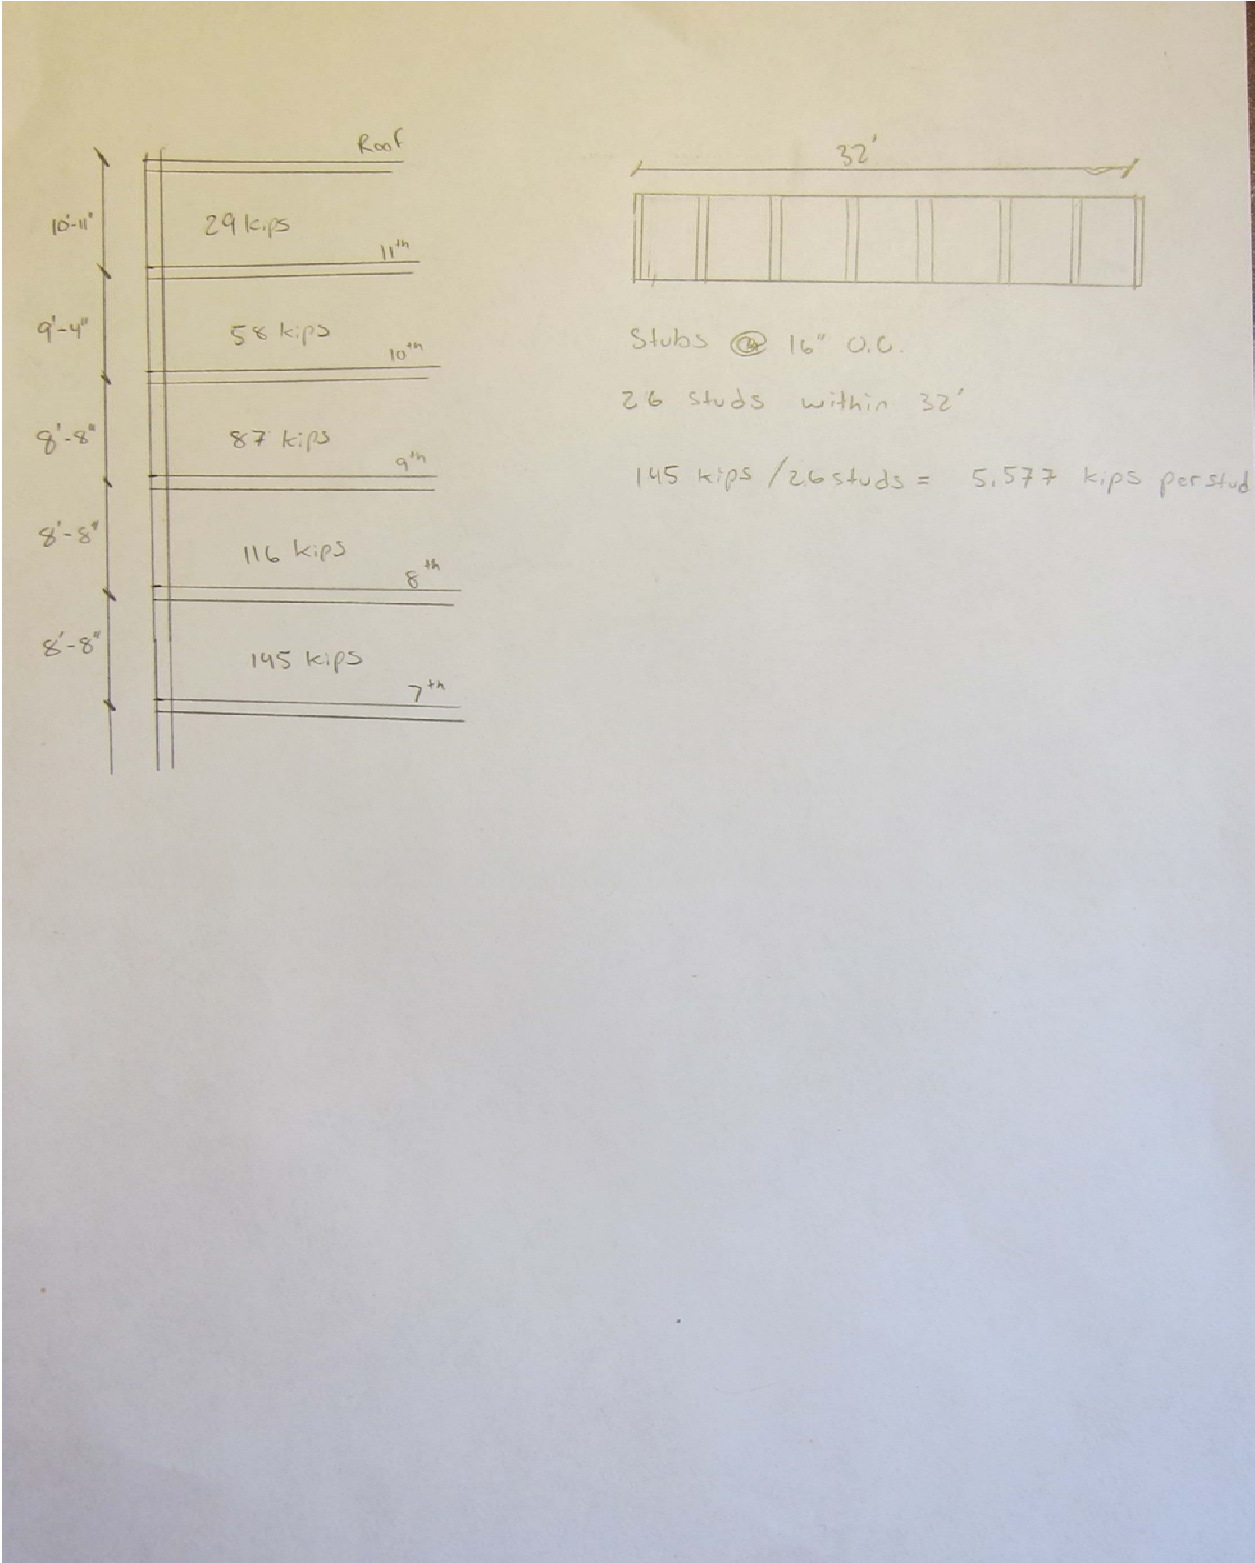 Roof
10'-11"
29 kips
11th
9'-4"
58 kips
10th
8'-8"
87 kips
9th
8'-8"
116 kips
8th
8'-8"
145 kips
7th
32'
Stubs @ 16" O.C.
26 studs within 32'
145 kips / 26 studs = 5.577 kips per stud